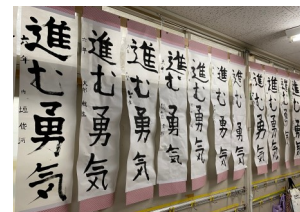 進む勇気
進む勇気
進む勇気
進む勇気
進む勇気
進む勇気
進む勇気
進む勇気
進む勇気
進む勇気